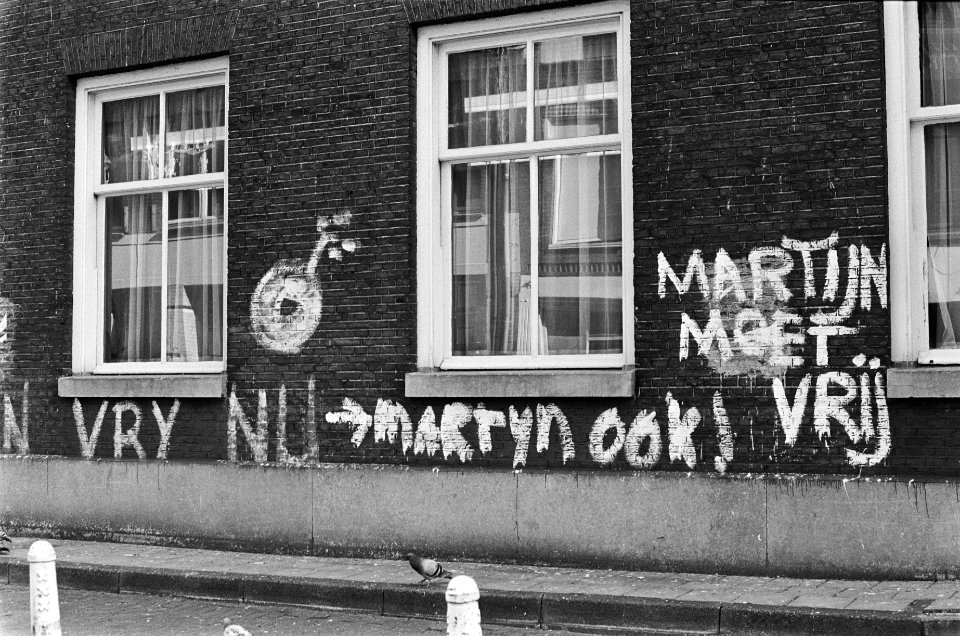 MARTIJN
MOET
VRIJ
N VRY NU → MARTYN OOK!